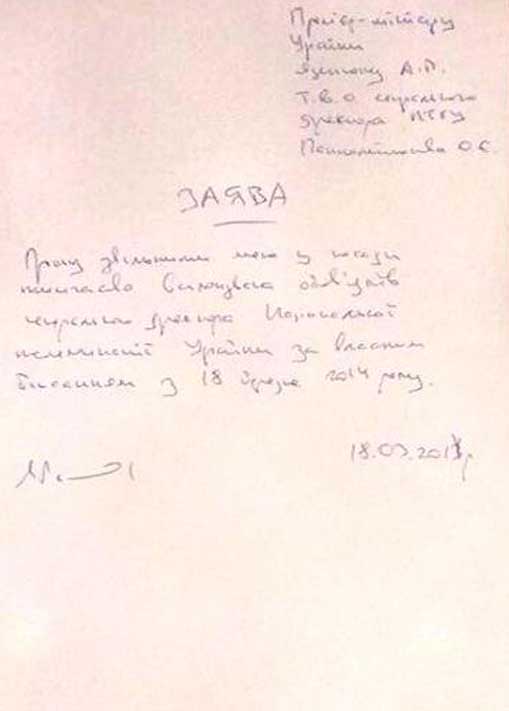 Прем'єр-міністру
України
Яценюку А.П.
Т.в.о генерального
директора НТКУ
Пантелеймонова О.Є.
ЗАЯВА
Прошу звільнити мене з посади
тимчасово виконувача обов'язків
генерального директора Національної
телекомпанії України за власним
бажанням з 18 березня 2014 року.
18.03.2014р